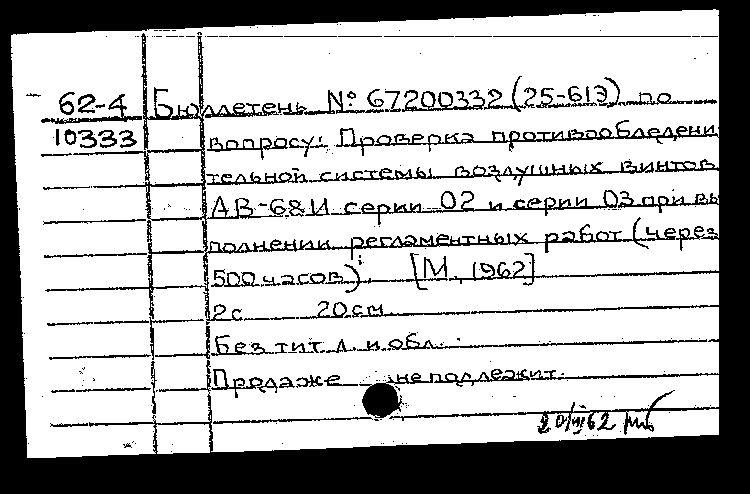 62-4 Бюллетень № 67200332 (25-61Э) по
10333 вопросу: Проверка противообледени
тельной системы воздушных винтов
АВ-68И серии 02 и серии 03 при вы
полнении регламентных работ (через
500 часов). [М., 1962]
2с 20см
Без тит. л. и обл.
Продаже не подлежит.
20/VIII 62